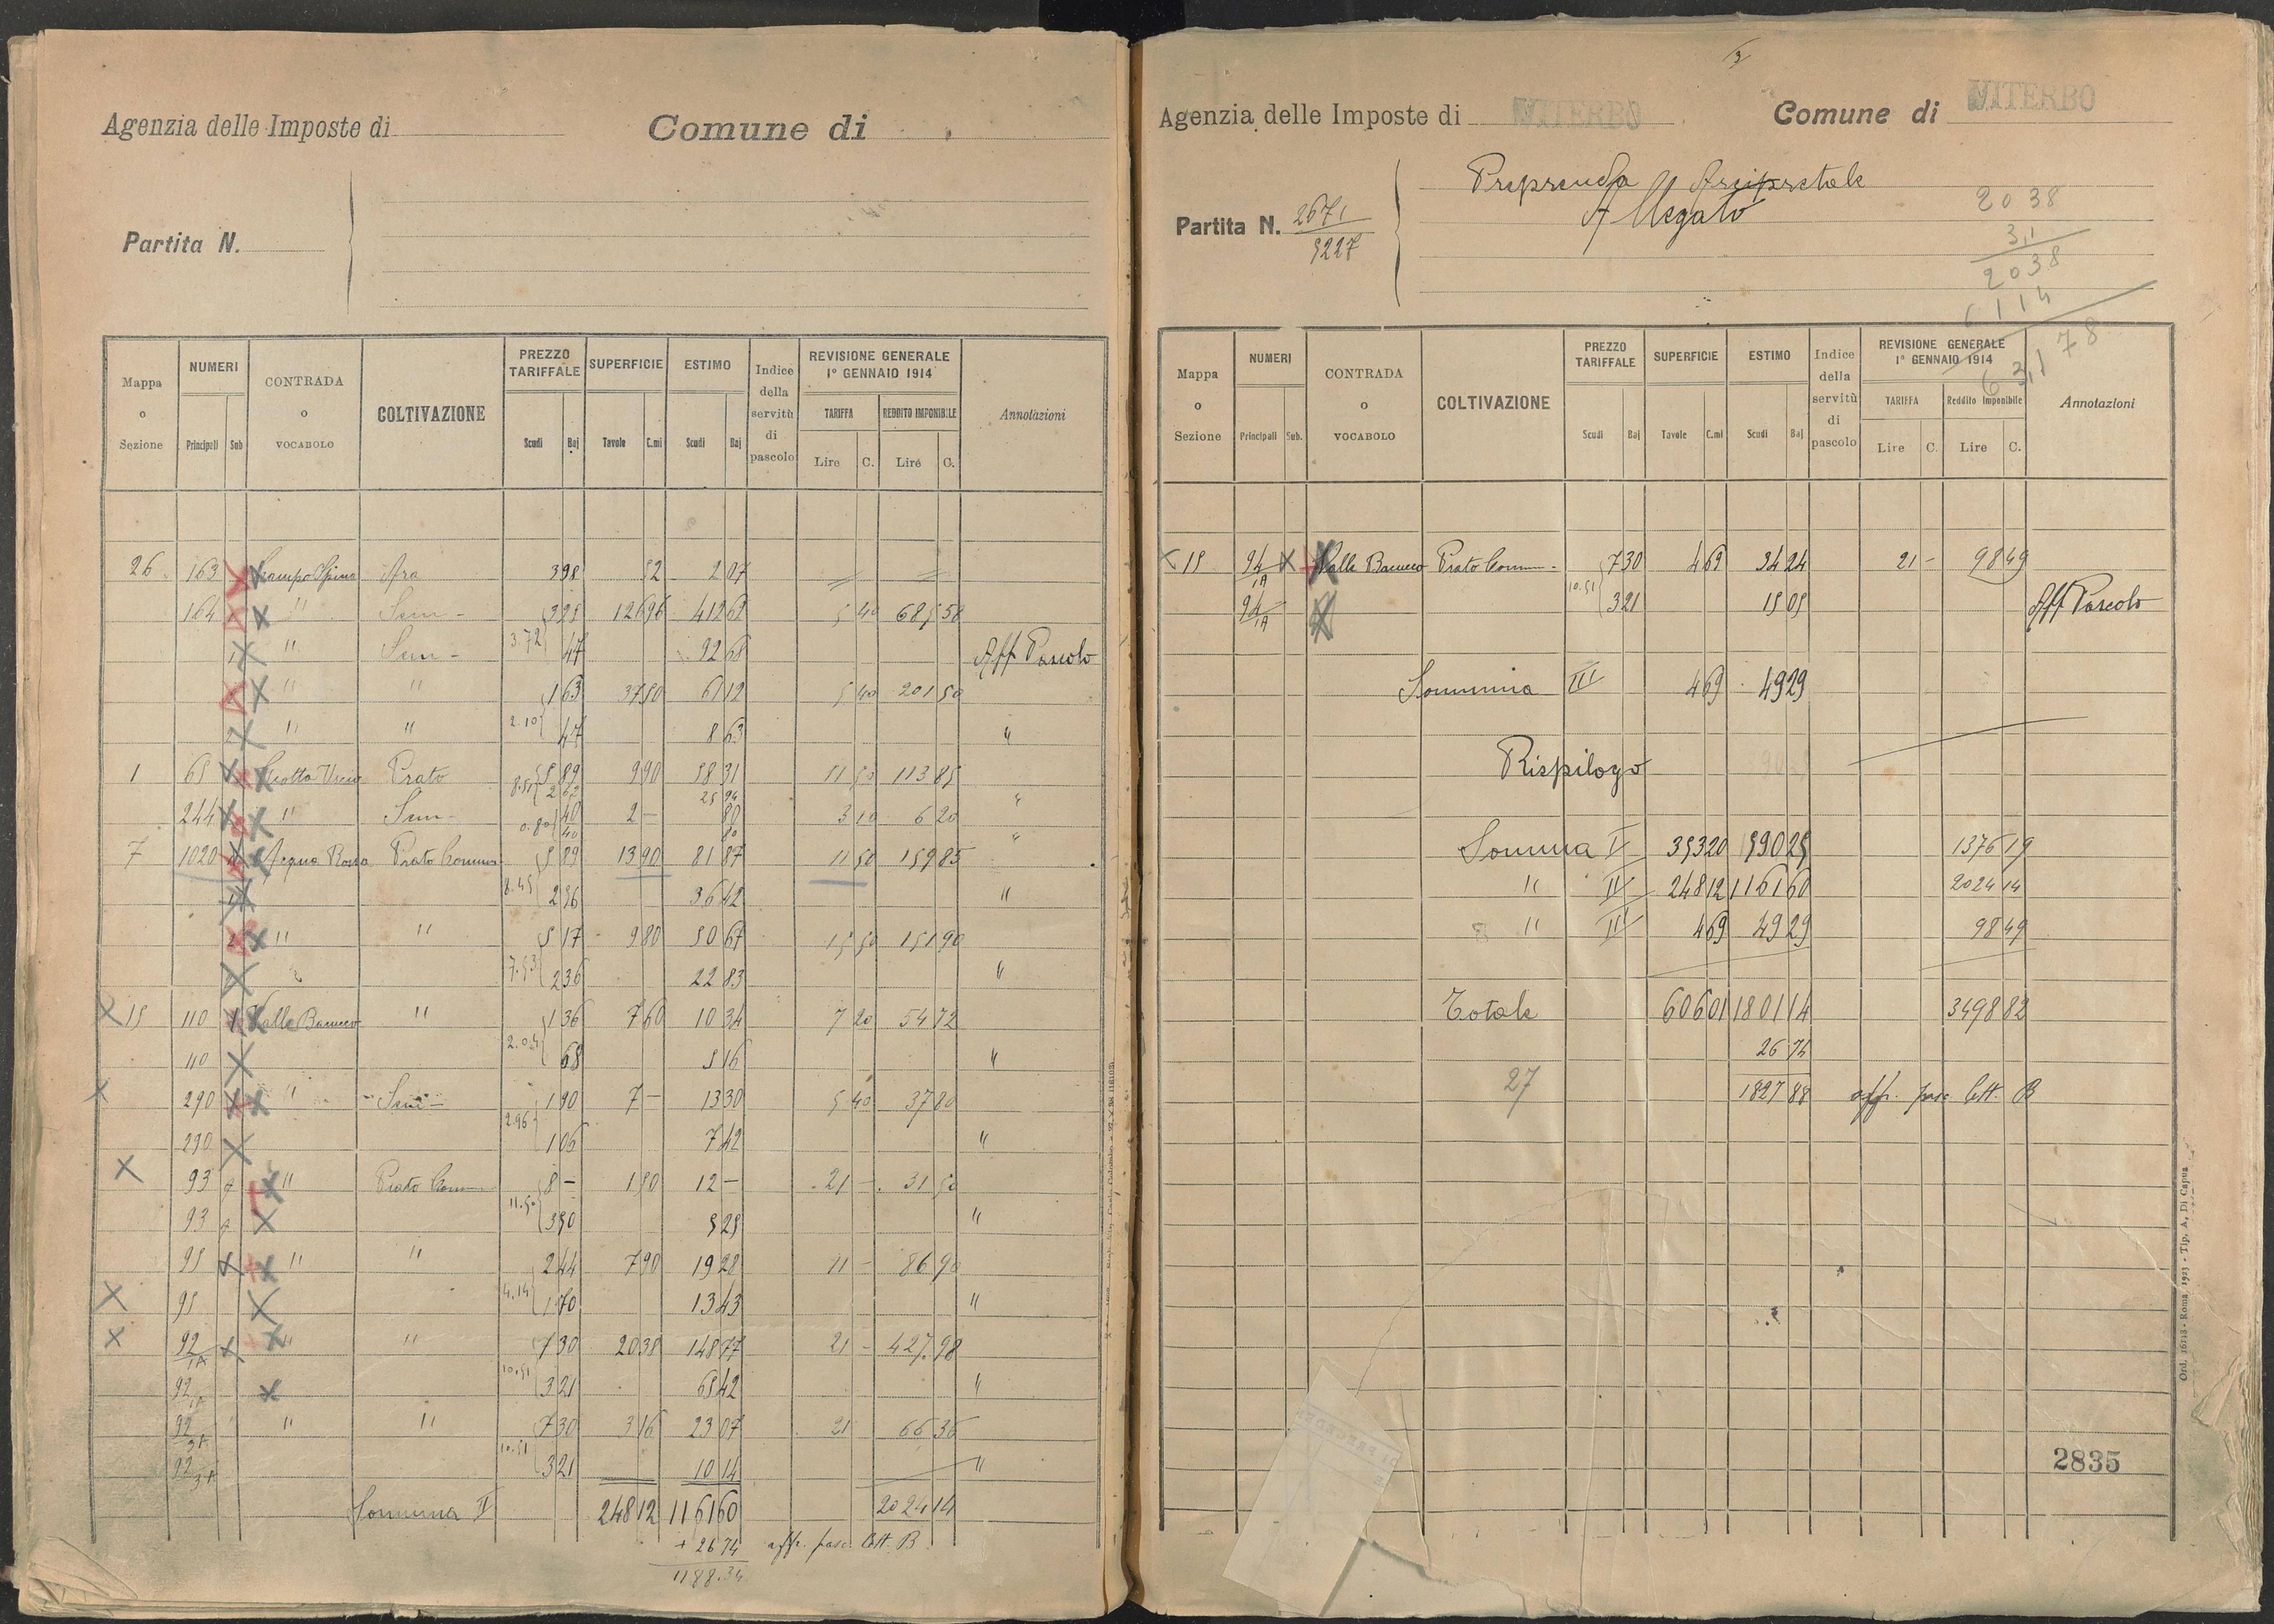 Agenzia delle Imposte di
Comune di
Partita N.
Mappa o Sezione | NUMERI Principali Sub | CONTRADA o VOCABOLO | COLTIVAZIONE | PREZZO TARIFFALE Scudi Baj | SUPERFICIE Tavole C.mi | ESTIMO Scudi Baj | Indice della servitù di pascolo | REVISIONE GENERALE 1º GENNAIO 1914 TARIFFA Lire C. REDDITO IMPONIBILE Lire C. | Annotazioni
26 163 Campo Spina Ara 3 98 52 2 07 = =
164 " Sem - 3 25 126 96 412 62 5 40 685 58
3.72 " Sem - 47 92 68 Aff Pascolo
" " 1 63 37 50 61 12 5 40 201 50
2.10 " " 47 8 63 "
1 65 Grotta Prato 5 89 9 90 58 31 11 50 113 85
8.51 2 62 25 94 "
244 " Sem - 40 2 - 80 3 10 6 20
0.80 40 80 "
7 1020 Acqua Rossa Prato Comm 5 89 13 90 81 87 11 50 159 85
8.45 2 56 36 42 "
" " 5 17 9 80 50 67 15 50 151 90
7.53 2 36 22 83 "
X 15 110 Valle Barucco " 1 36 7 60 10 34 7 20 54 72
110 2.04 68 5 16 "
X 290 " Sem - 1 90 7 - 13 30 5 40 37 80
290 2.96 1 06 7 42 "
X 93 " Prato Comm 8 - 1 50 12 - 21 - 31 50
93 11.50 3 50 5 25 "
95 " " 2 44 7 90 19 28 11 - 86 90
X 95 4.14 1 70 13 43 "
X 92/1A " " 7 30 20 38 148 77 21 - 427.98
92/1A 10.51 3 21 65 42 "
92/3A " " 7 30 3 16 23 07 21 66 36
92/3A 10.51 3 21 10 14 "
Somma II 248 12 1161 60 2024 14
+ 26 74 aff. pasc. lett. B
1188.34
VITERBO
Agenzia delle Imposte di VITERBO
Comune di VITERBO
Partita N. 2671
5227
Preprenda Arcipretale
Allegato
2038
3,1
2038
6114
63,178
Mappa o Sezione | NUMERI Principali Sub. | CONTRADA o VOCABOLO | COLTIVAZIONE | PREZZO TARIFFALE Scudi Baj | SUPERFICIE Tavole C.mi | ESTIMO Scudi Baj | Indice della servitù di pascolo | REVISIONE GENERALE 1ª GENNAIO 1914 TARIFFA Lire C. Reddito Imponibile Lire C. | Annotazioni
X 15 94/1A X Valle Barucco Prato Comm - 7 30 4 69 34 24 21 - 98 49
94/1A 10.51 3 21 15 05 Aff Pascolo
Somma III 4 69 49 29
Rispilogo
Somma I 353 20 590 25 1376 19
" II 248 12 1161 60 2024 14
" III 4 69 49 29 98 49
Totale 606 01 1801 14 3498 82
26 74
27 1827 88 aff. pasc lett. B
2835
Ord. 16118 - Roma, 1923 - Tip. A. Di Capua